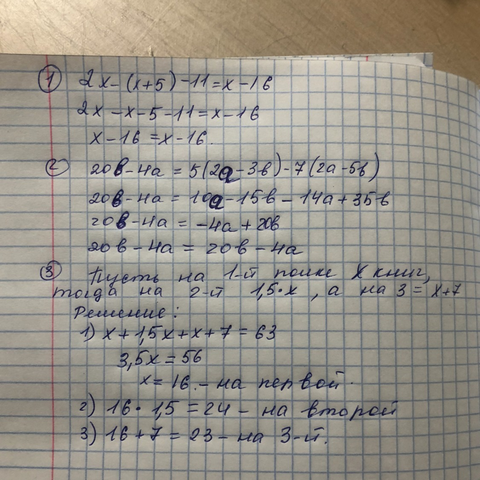 1 2x-(x+5)-11=x-16
2x-x-5-11=x-16
x-16=x-16.
2 20в-4а = 5(2а-3в)-7(2а-5в)
20в-4а = 10а-15в-14а+35в
20в-4а = -4а+20в
20в-4а = 20в-4а
3 Пусть на 1-й полке x книг,
тогда на 2-й 1,5·x, а на 3 = x+7
Решение:
1) x+1,5x+x+7=63
3,5x=56
x=16 - на первой.
2) 16·1,5=24 - на второй
3) 16+7=23 - на 3-й.